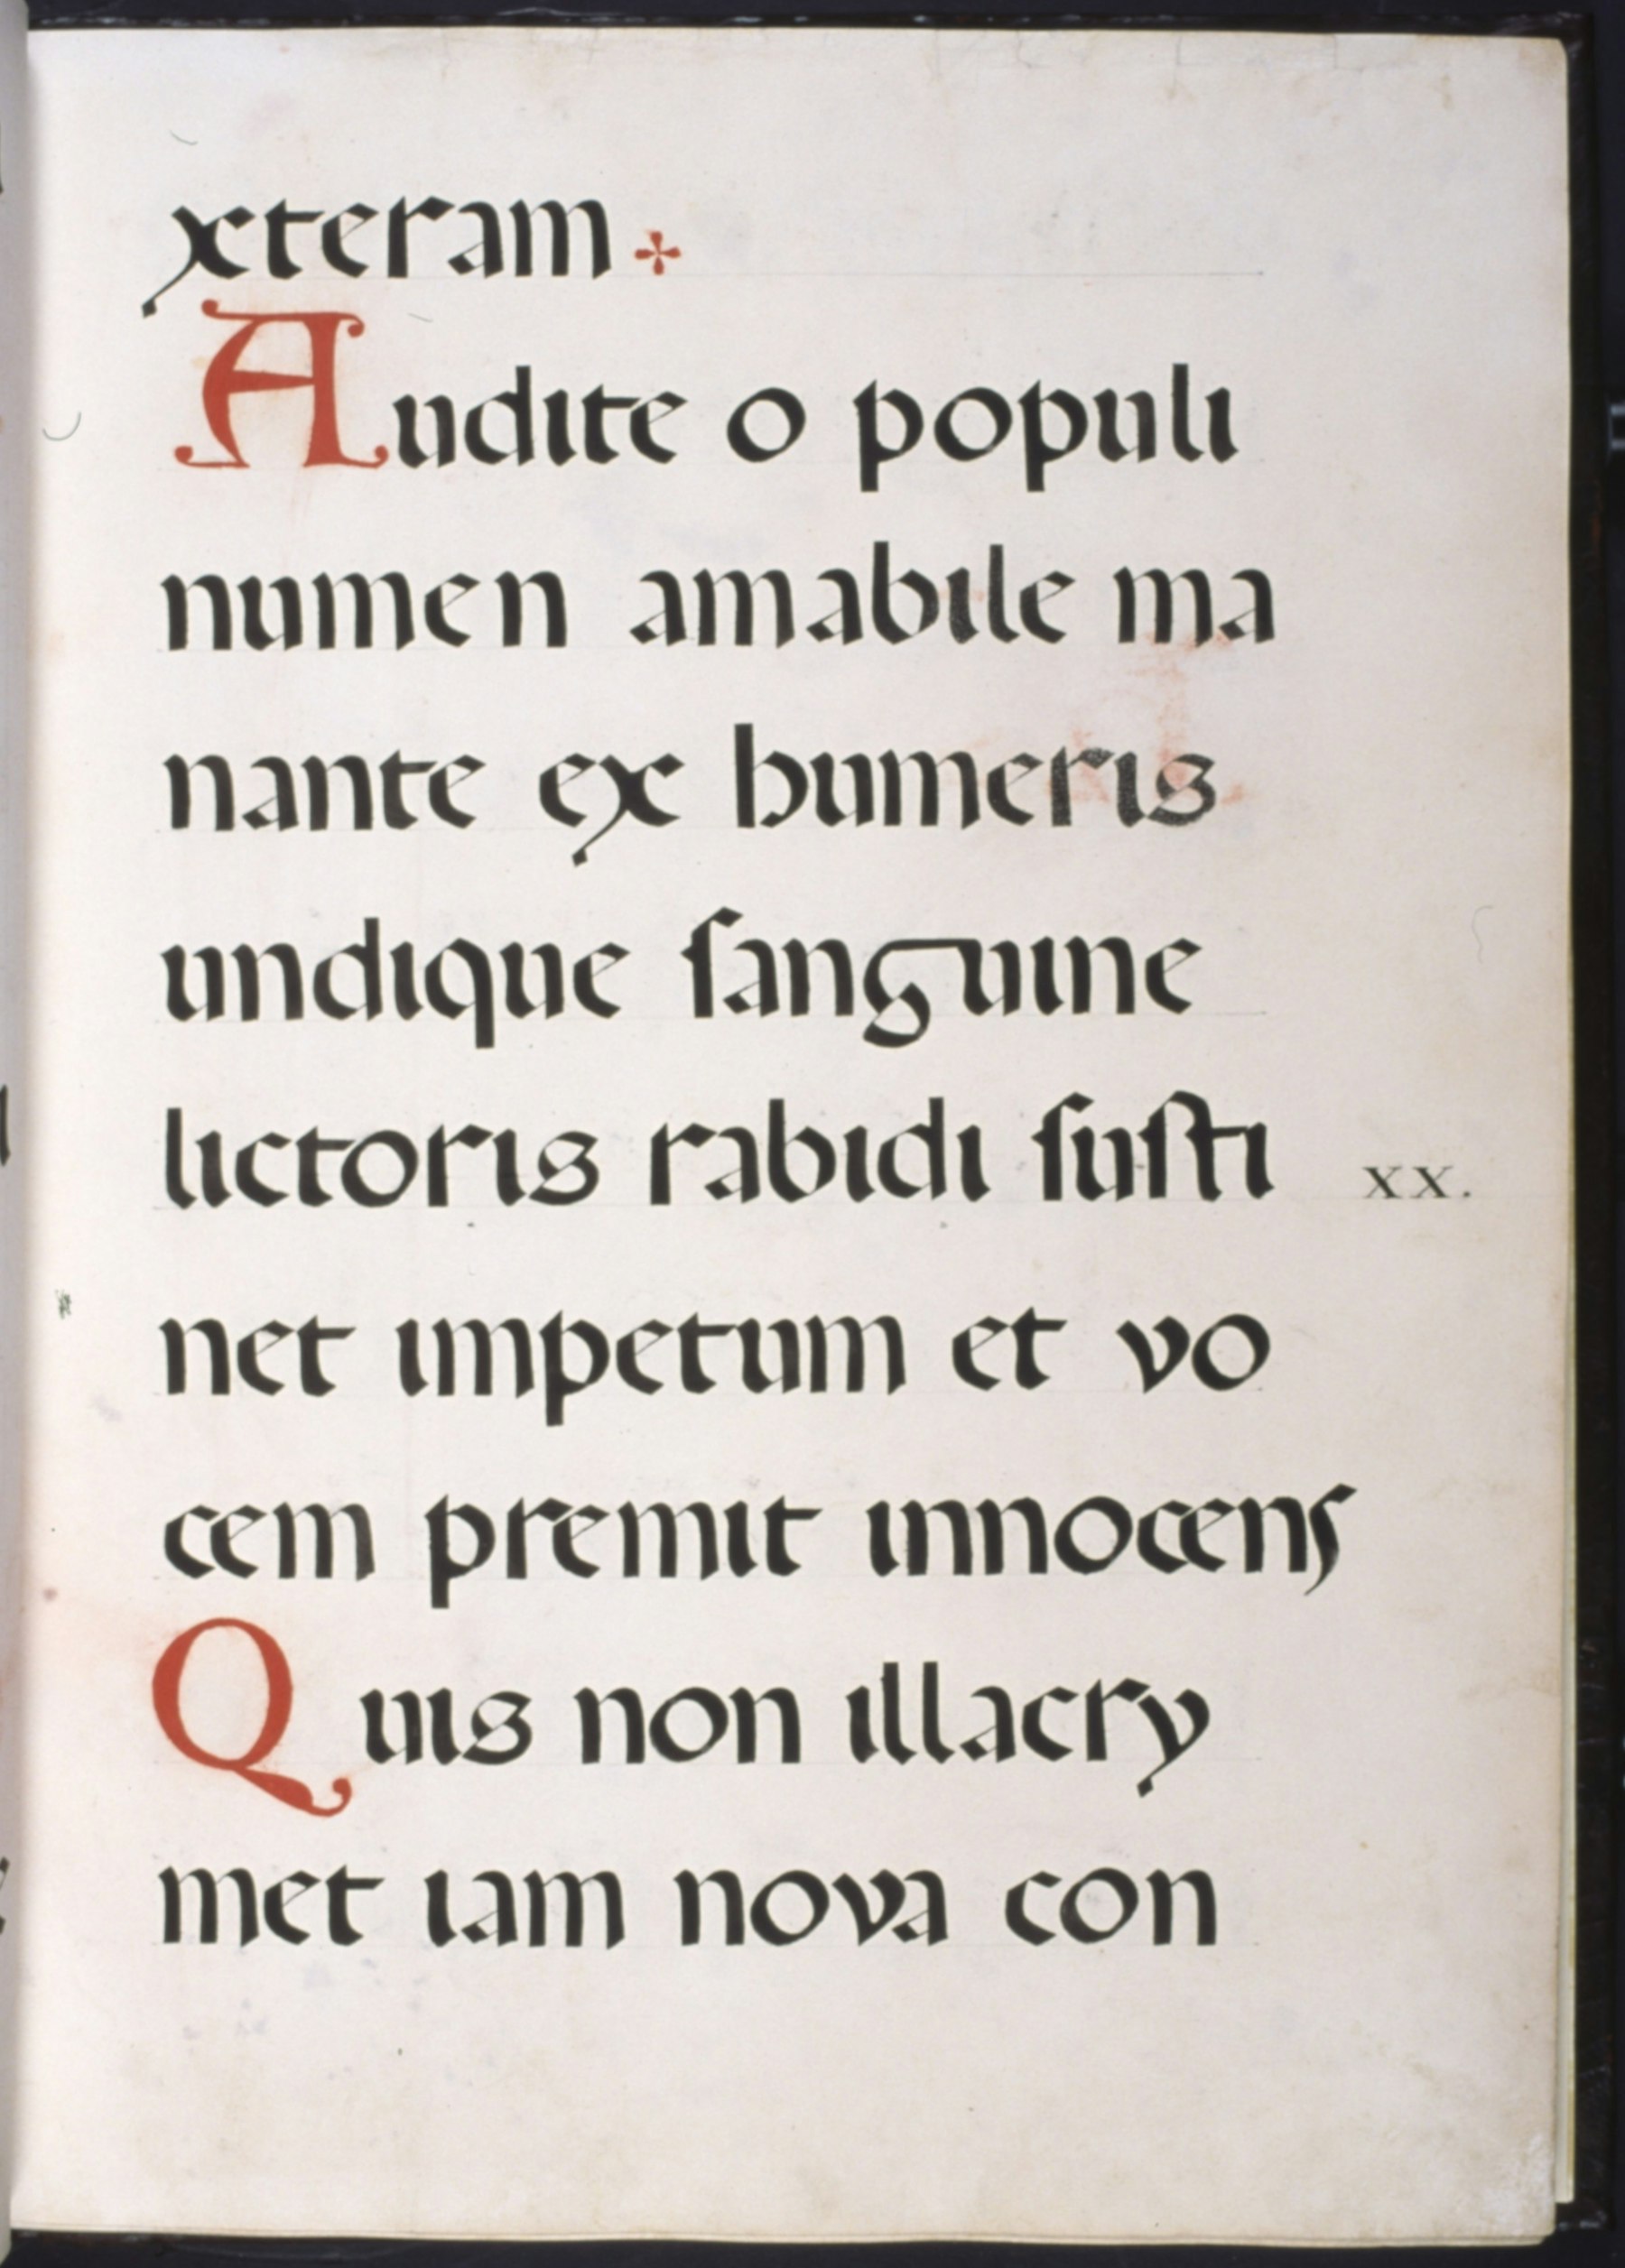 xteram
Audite o populi
numen amabile ma
nante ex humeris
undique ſanguine
lictoris rabidi ſuſti xx.
net impetum et vo
cem premit innocens
Quis non illacry
met iam nova con